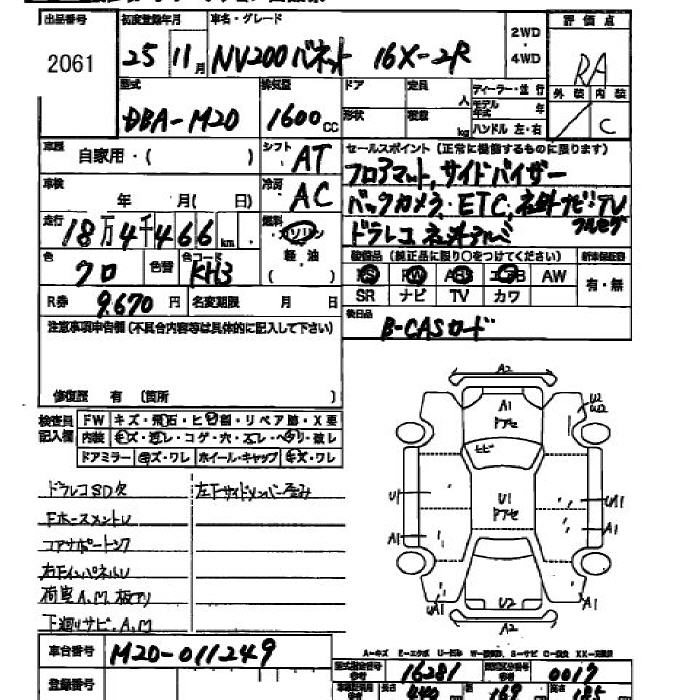 出品番号 初度登録年月 車名・グレード 2WD・4WD 評価点
2061 25 11月 NV200バネット 16X-2R RA
外装 内装
C
型式 排気量 ドア 定員 人 ディーラー・並行
DBA-M20 1600cc 形状 積載 kg モデル年式 年
ハンドル 左・右
車歴 自家用・( ) シフト AT セールスポイント(正常に機能するものに限ります)
フロアマット、サイドバイザー
車検 年 月( 日) 冷房 AC バックカメラ、ETC、社外ナビ!TV
フルセグ
走行 18万4千466km 燃料 ガソリン 軽油 ( ) ドラレコ、社外アルミ
色 クロ 色替 色コード KH3
装備品(純正品に限り○をつけてください) 新車保証書
PS PW ABS エアB AW 有・無
SR ナビ TV カワ
R券 9,670円 名変期限 月 日
後日品 B-CASカード
注意事項申告欄(不具合内容等は具体的に記入して下さい)
修復歴 有 (箇所 )
検査員記入欄
FW キズ・飛石・ヒビ割・リペア跡・X要
内装 キズ・汚レ・コゲ・穴・スレ・ヘタリ・破レ
ドアミラー キズ・ワレ ホイール・キャップ キズ・ワレ
ドラレコSD欠 左下サイドメンバー歪み
FホースメントU
コアサポートンク
右下インパネルU
荷室A.M、板アリ
下廻りサビ、A.M
A2
A1
アセ
U2
W2
ヒビ
U1 U1 アセ UA1
A1 A1
U2
UA1 A1
A2
A-キズ E-エクボ U-凹み W-補修跡 S-サビ C-腐食 XX-交換済
車台番号 M20-011249
登録番号
型式指定番号 16281 類別区分番号 0017
長さ 440 幅 169 高さ 185